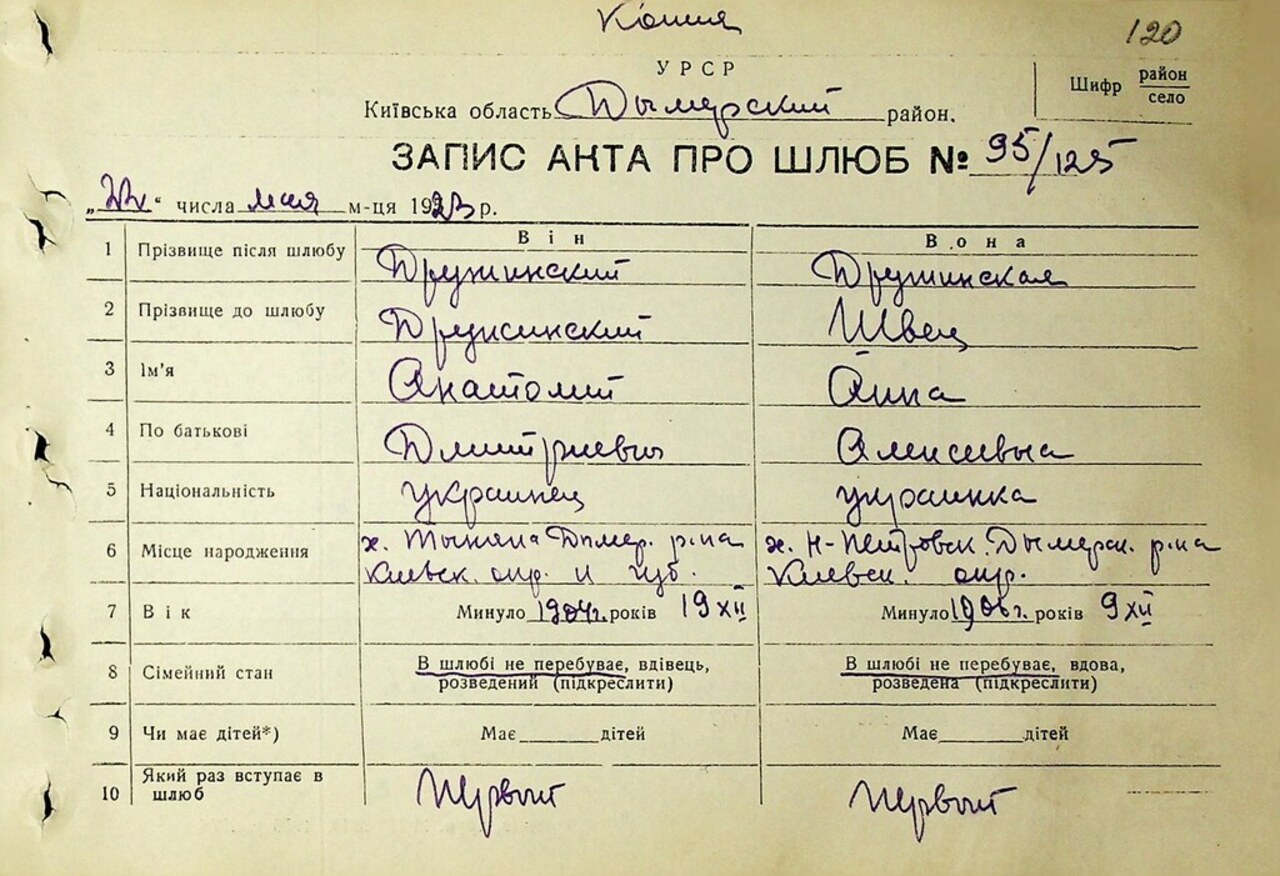 Копия
120
УРСР
Шифр район
село
Київська область Дымерский район.
ЗАПИС АКТА ПРО ШЛЮБ № 95/125
„22“ числа мая м-ця 1923 р.
Він Вона
1 Прізвище після шлюбу Дружинский Дружинская
2 Прізвище до шлюбу Дружинский Швец
3 Ім'я Анатолий Анна
4 По батькові Дмитриевич Алексеевна
5 Національність украинец украинка
6 Місце народження х. Дымер. р-на х. Н-Петровск. Дымерск. р-на
Киевск. окр. и губ. Киевск. окр.
7 Вік Минуло 1904г. років 19 XII Минуло 1906г. років 9 XII
8 Сімейний стан В шлюбі не перебуває, вдівець, В шлюбі не перебуває, вдова,
розведений (підкреслити) розведена (підкреслити)
9 Чи має дітей*) Має дітей Має дітей
10 Який раз вступає в
шлюб Первый Первый